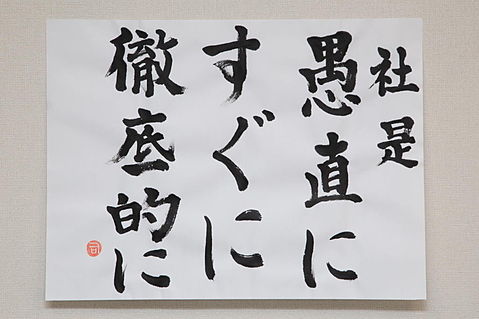 社是
愚直に
すぐに
徹底的に